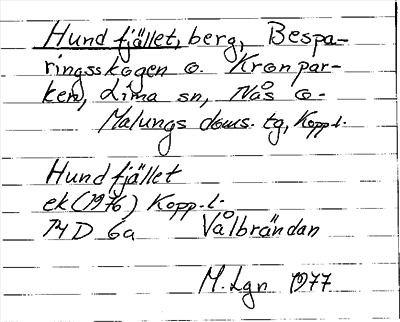 Hundfjället, berg, Bespa-
ringsskogen o. Kronpar-
ken, Lima sn, Nås o.
Malungs doms. tg, Kopp.l.
Hundfjället
ek (1976) Kopp.l.
14D 6a Vålbrändan
M.Lgn 1977